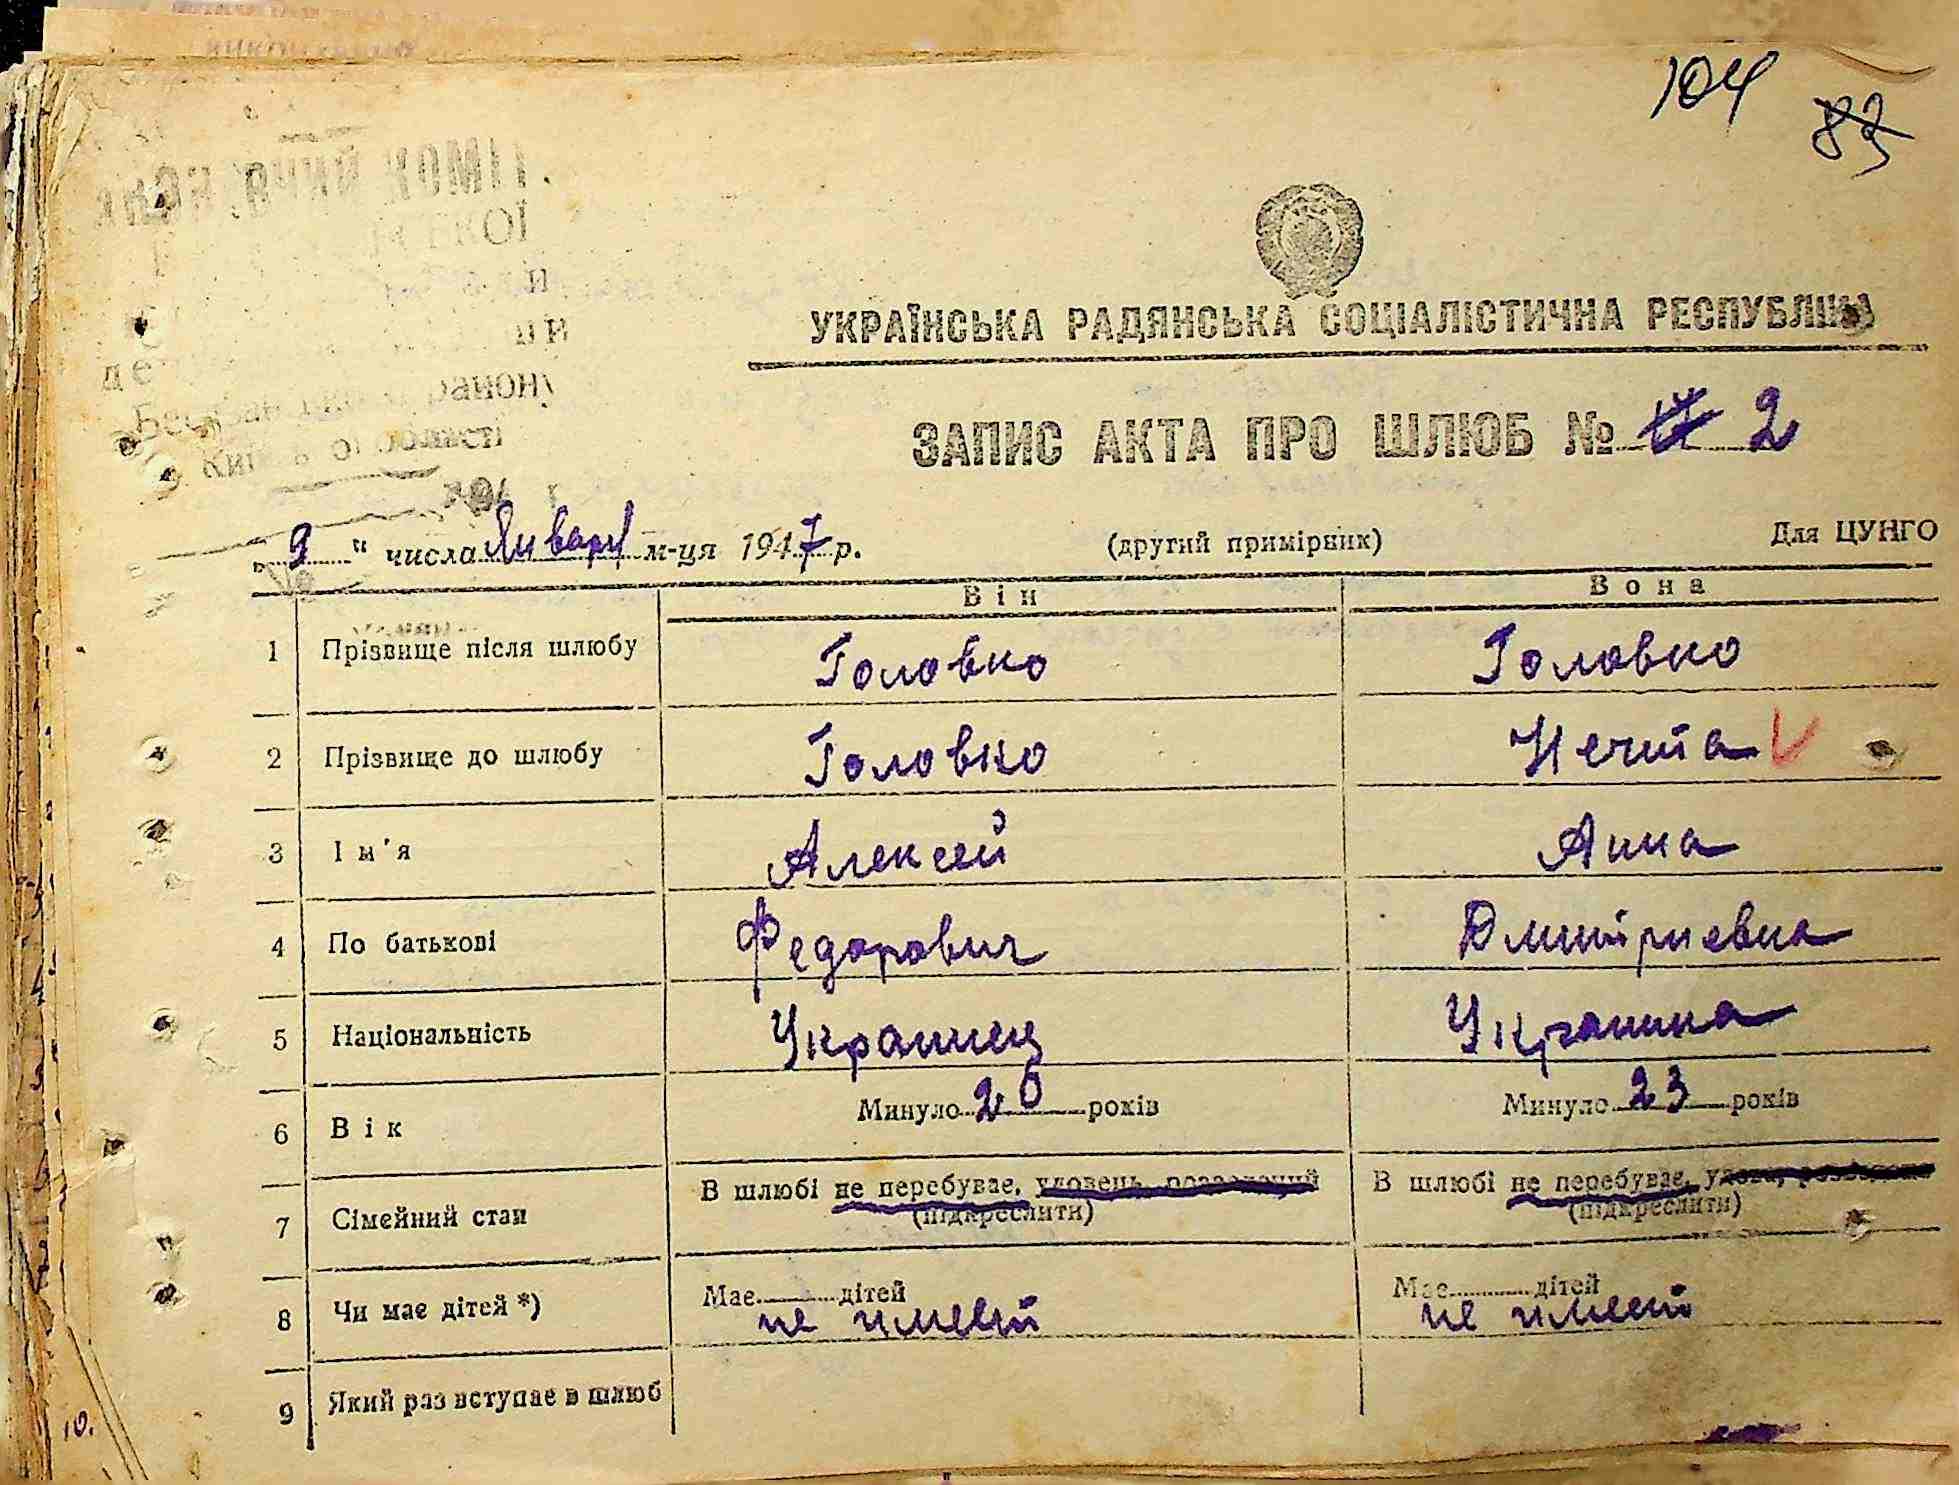 104
83
УКРАЇНСЬКА РАДЯНСЬКА СОЦІАЛІСТИЧНА РЕСПУБЛІКА
ЗАПИС АКТА ПРО ШЛЮБ № 2
району
області
„ 9 " числа Января м-ця 1947 р. (другий примірник) Для ЦУНГО
Він Вона
1 Прізвище після шлюбу Головко Головко
2 Прізвище до шлюбу Головко Нечита V
3 Ім'я Алексей Анна
4 По батькові Федорович Дмитриевна
5 Національність Украинец Украинка
6 Вік Минуло 20 років Минуло 23 років
7 Сімейний стан В шлюбі не перебуває, удовець, розведений В шлюбі не перебуває, удова, розведена
(підкреслити) (підкреслити)
8 Чи має дітей *) Має дітей Має дітей
не имеет не имеет
9 Який раз вступає в шлюб
10.